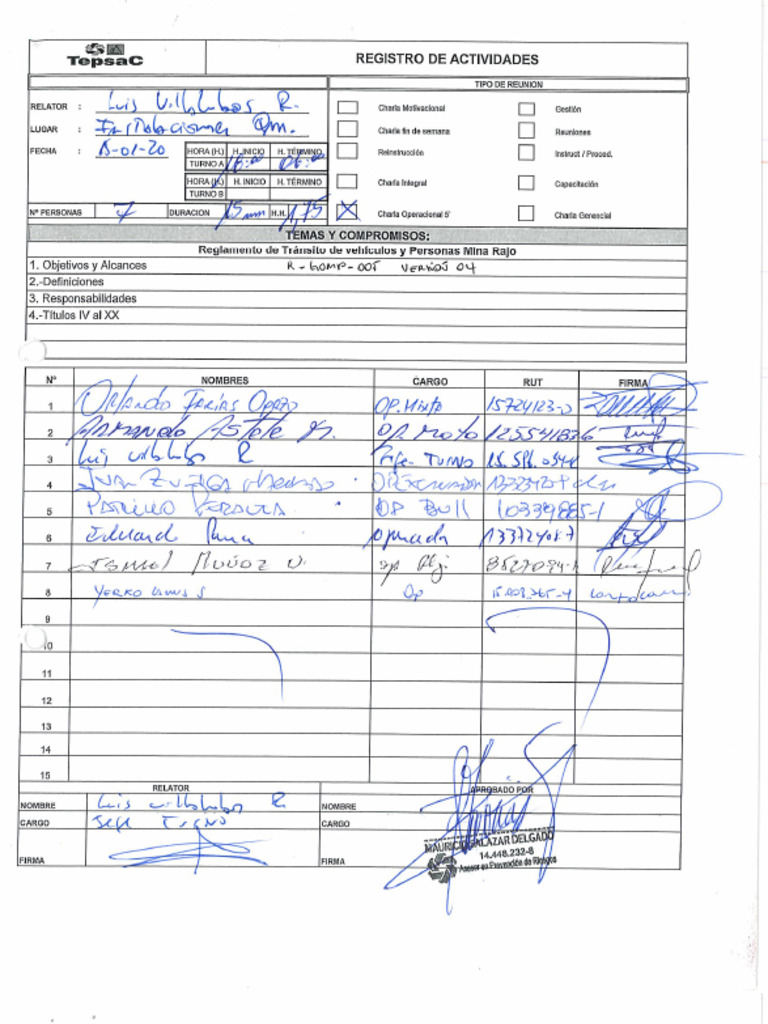 TepsaC
REGISTRO DE ACTIVIDADES
TIPO DE REUNION
RELATOR : Luis Villalobos R.
LUGAR : Instalaciones
FECHA : 15-01-20
HORA (H.) H. INICIO H. TÉRMINO
TURNO A 18:00
HORA (H.) H. INICIO H. TÉRMINO
TURNO B
Charla Motivacional Gestión
Charla fin de semana Reuniones
Reinstrucción Instruct / Proced.
Charla Integral Capacitación
X Charla Operacional 5' Charla Gerencial
Nº PERSONAS 7 DURACION 15 min H.H. 1,75
TEMAS Y COMPROMISOS:
Reglamento de Tránsito de vehículos y Personas Mina Rajo
1. Objetivos y Alcances R-GOMP-005 04
2.-Definiciones
3. Responsabilidades
4.-Títulos IV al XX
Nº NOMBRES CARGO RUT FIRMA
1 Orlando Farías Opazo OP. Mixto 15724123-0
2 Armando Astete M. OP. Moto
3 Luis Villalobos R Jefe Turno
4 Juan Zuñiga
5 Patricio OP Bull 10339885-1
6 Eduardo 13372408-7
7 Ismael Muñoz V.
8 Yerko Lamus S Op
9
10
11
12
13
14
15
RELATOR APROBADO POR
NOMBRE Luis Villalobos R NOMBRE
CARGO Jefe Turno CARGO
FIRMA FIRMA
MAURICIO SALAZAR DELGADO
14.448.232-8
Asesor en Prevención de Riesgos